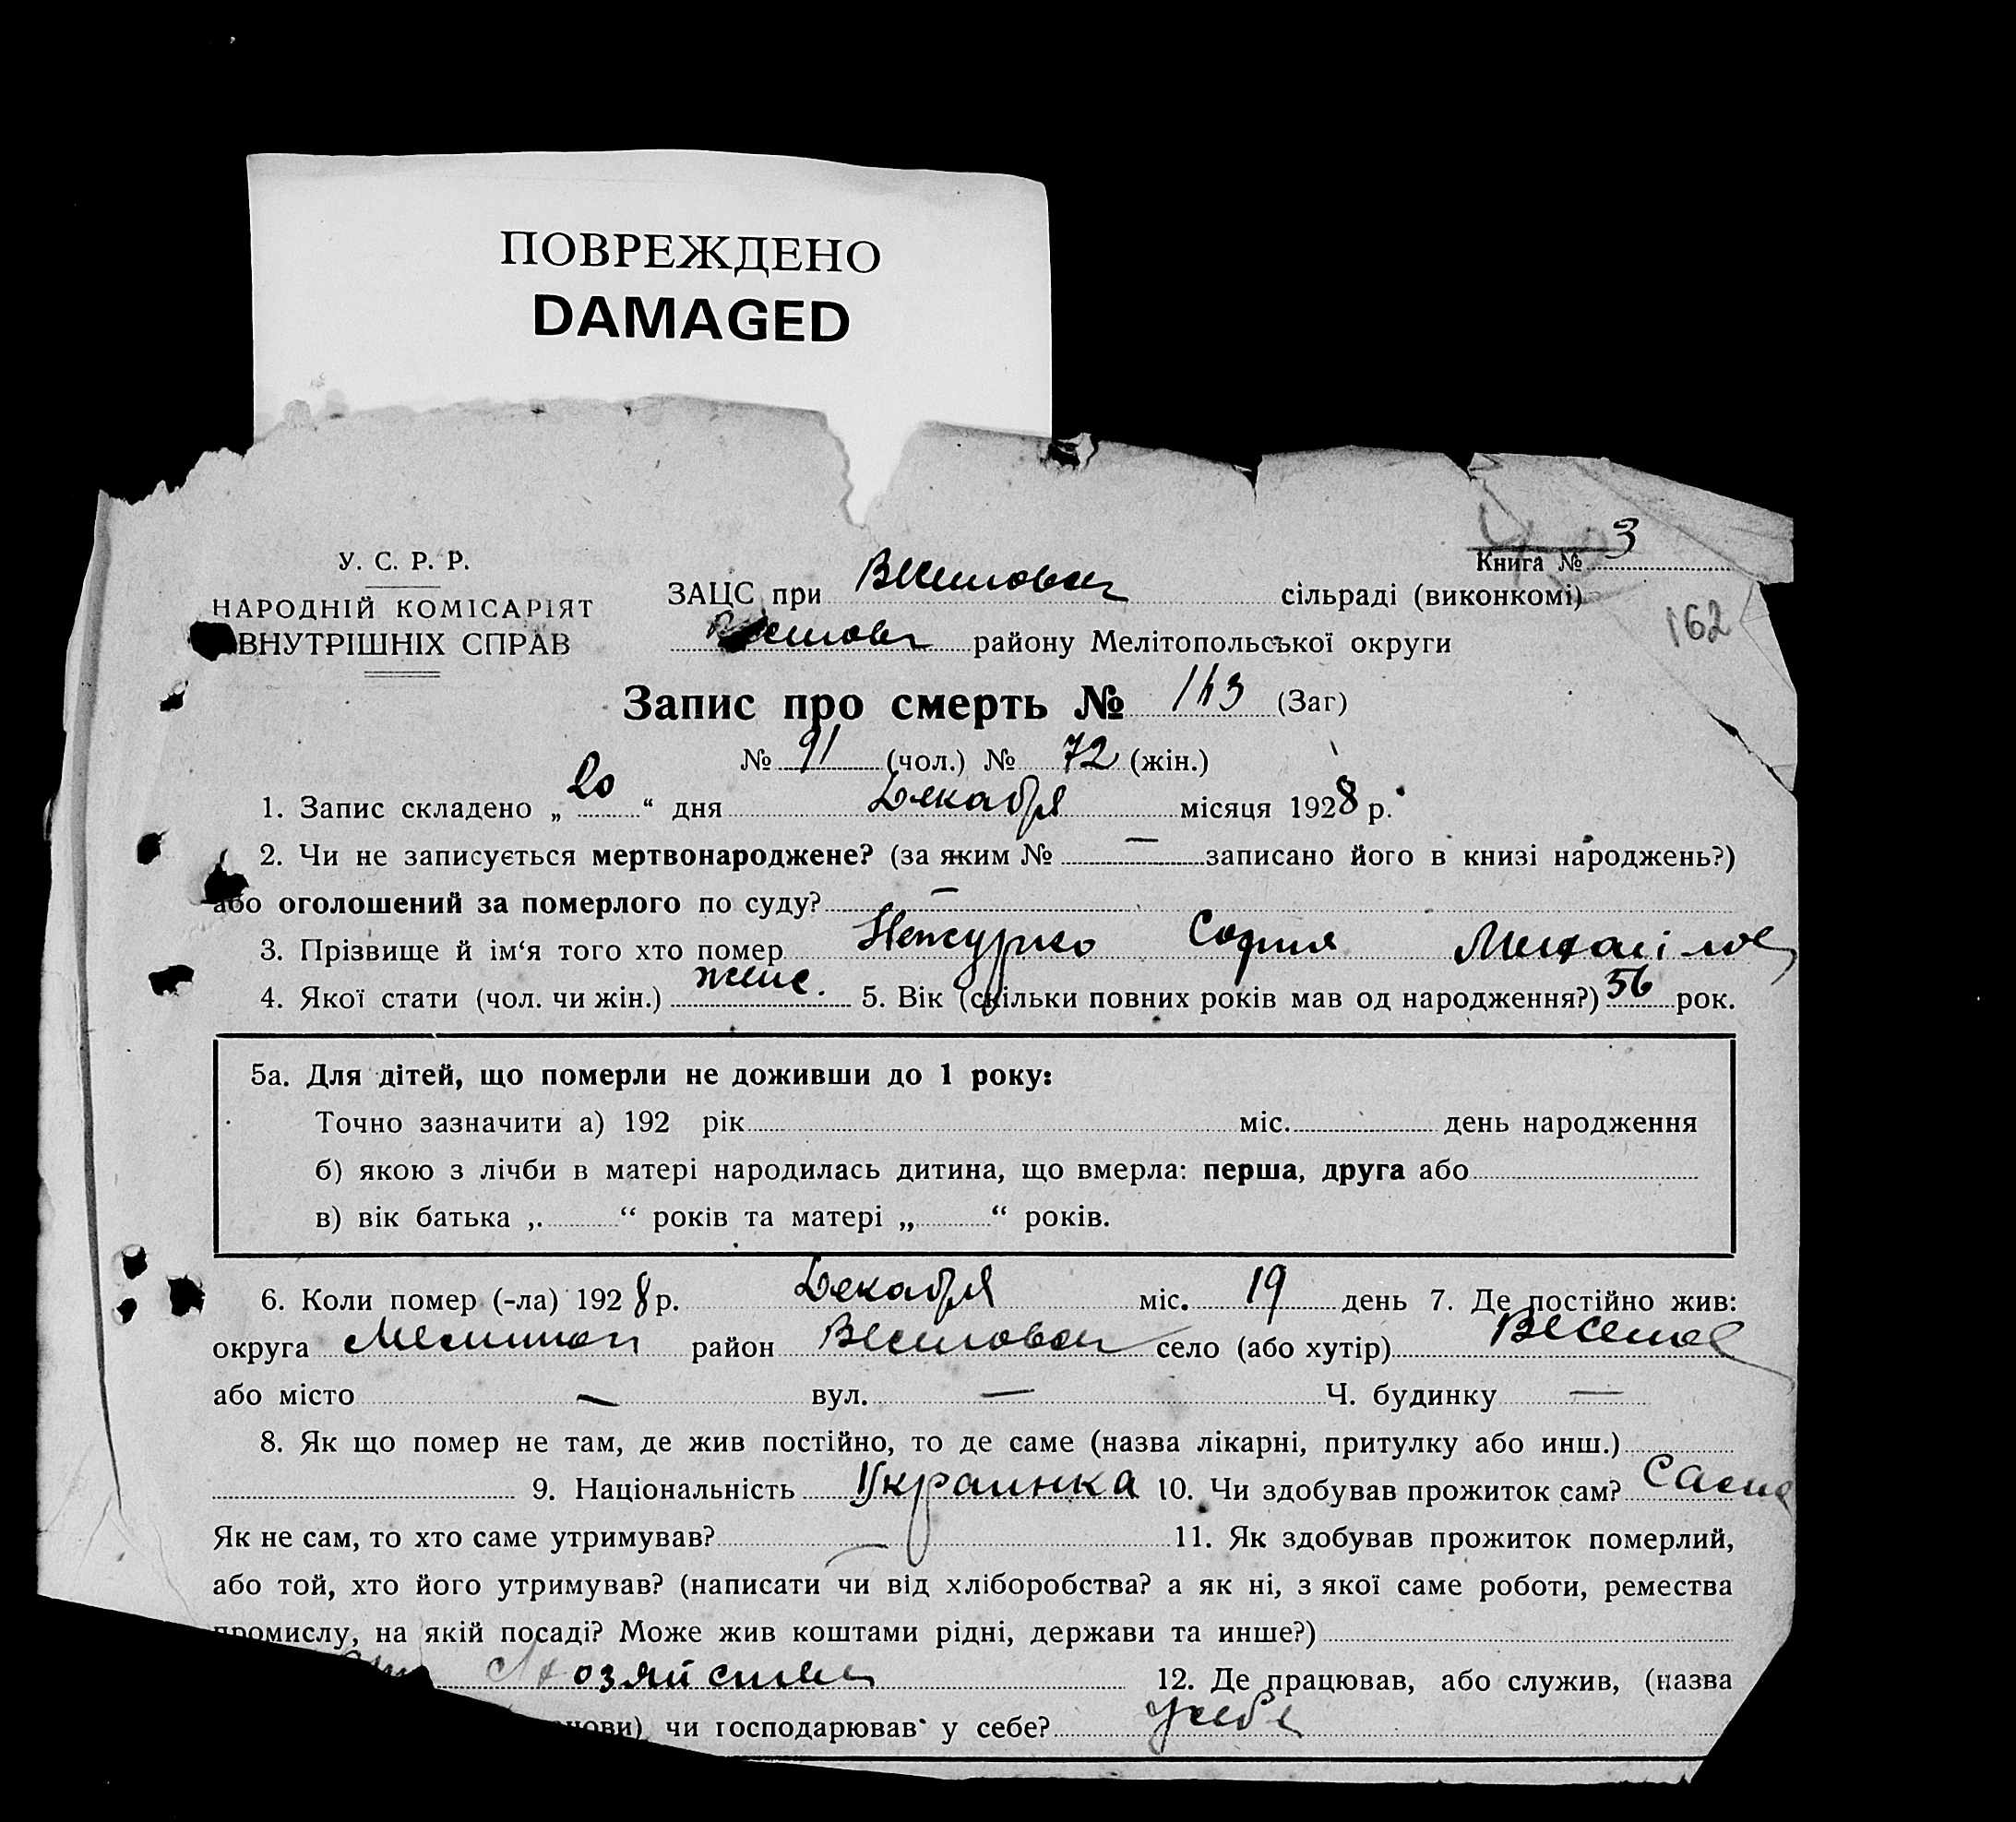 ПОВРЕЖДЕНО
DAMAGED
Книга № 3
162
У. С. Р. Р.
НАРОДНІЙ КОМІСАРІЯТ
ВНУТРІШНІХ СПРАВ
ЗАЦС при сільраді (виконкомі)
району Мелітопольської округи
Запис про смерть № (Заг)
№ 91 (чол.) № 72 (жін.)
1. Запис складено „ 20 “ дня Декабря місяця 1928 р.
2. Чи не записується мертвонароджене? (за яким № — записано його в книзі народжень?)
або оголошений за померлого по суду? —
3. Прізвище й ім‘я того хто помер София
4. Якої стати (чол. чи жін.) женс. 5. Вік (скільки повних років мав од народження?) 56 рок.
5а. Для дітей, що померли не доживши до 1 року:
Точно зазначити а) 192 рік міс. день народження
б) якою з лічби в матері народилась дитина, що вмерла: перша, друга або
в) вік батька „ “ років та матері „ “ років.
6. Коли помер (-ла) 1928 р. Декабря міс. 19 день 7. Де постійно жив:
округа район село (або хутір)
або місто — вул. — Ч. будинку —
8. Як що помер не там, де жив постійно, то де саме (назва лікарні, притулку або инш.)
9. Національність Украинка 10. Чи здобував прожиток сам? Сама
Як не сам, то хто саме утримував? — 11. Як здобував прожиток померлий,
або той, хто його утримував? (написати чи від хліборобства? а як ні, з якої саме роботи, ремества
промислу, на якій посаді? Може жив коштами рідні, держави та инше?)
12. Де працював, або служив, (назва
нови) чи господарював у себе? у себе